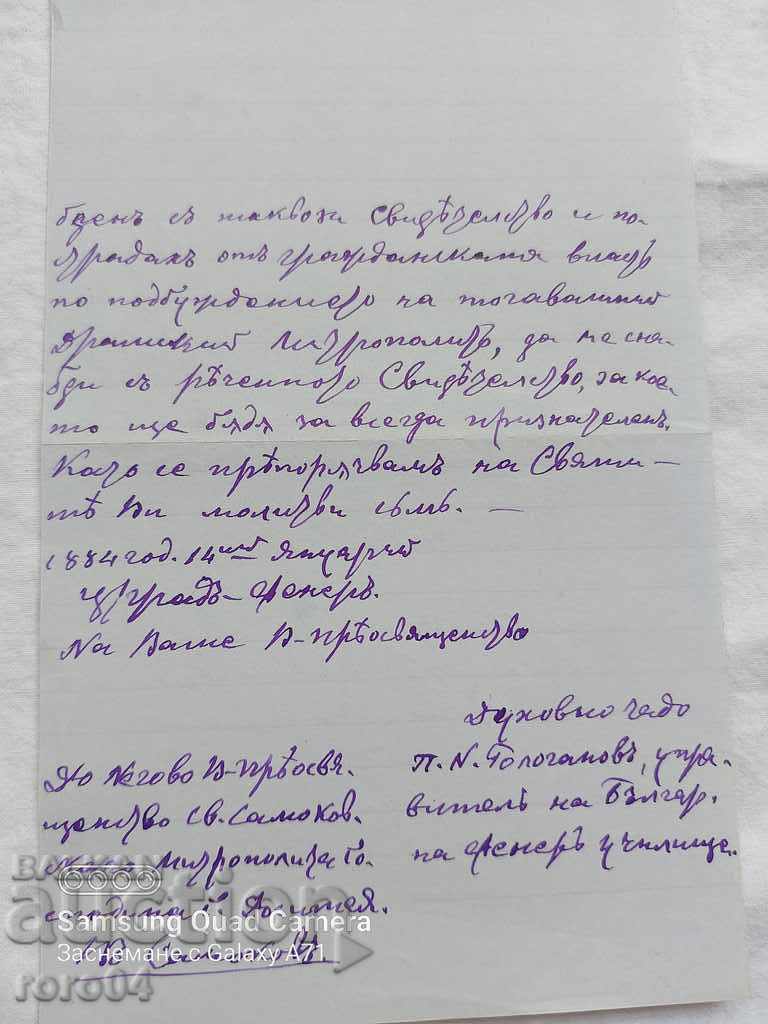 бденъ съ таквози Свидѣтелство и по-
страдахъ отъ гражданската власть
по подбужданието на тогавашний
Драмский Митрополитъ, да ме сна-
бди съ рѣченното Свидѣтелство, за кое-
то ще бѫдѫ за всегда признателенъ.
Като се прѣпорѫчвамъ на Святи-
тѣ Ви молитви съмъ. —
1884 год. 14ий Януарий
Цр/градъ - Фенеръ.
На Ваше В-Прѣосвященство
Духовно чадо
П. N. Гологановъ, упра-
витель на Българ.
на Фенеръ училище.
До Негово В-Прѣосвя-
щенство Св. Самоков-
Митрополита Го-
сподина Доситея.
Самоковъ
BALKAN auction
Samsung Quad Camera
Заснемане с Galaxy A71
roro04